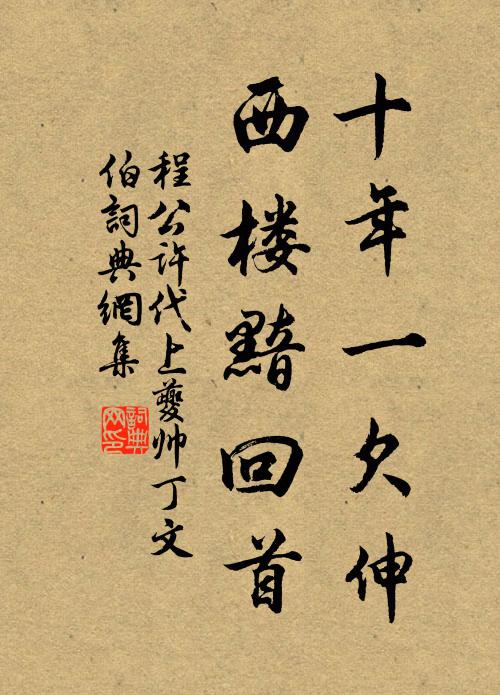 十年一欠伸
西楼黯回首
程公许代上夔帅丁文
伯詞典網集
詞典网印